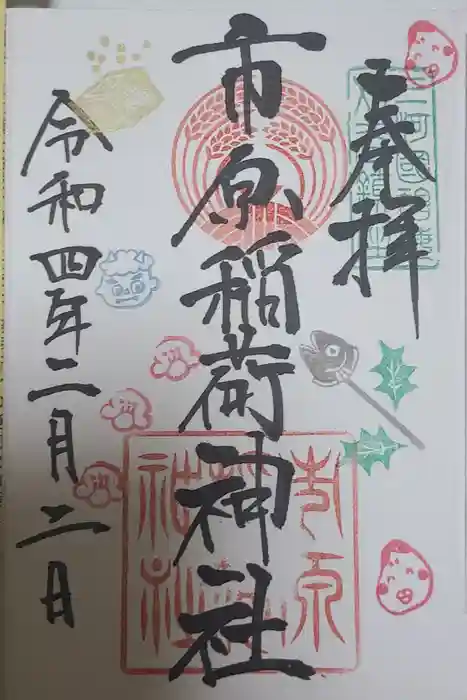 奉拝
市原稲荷神社
令和四年二月二日